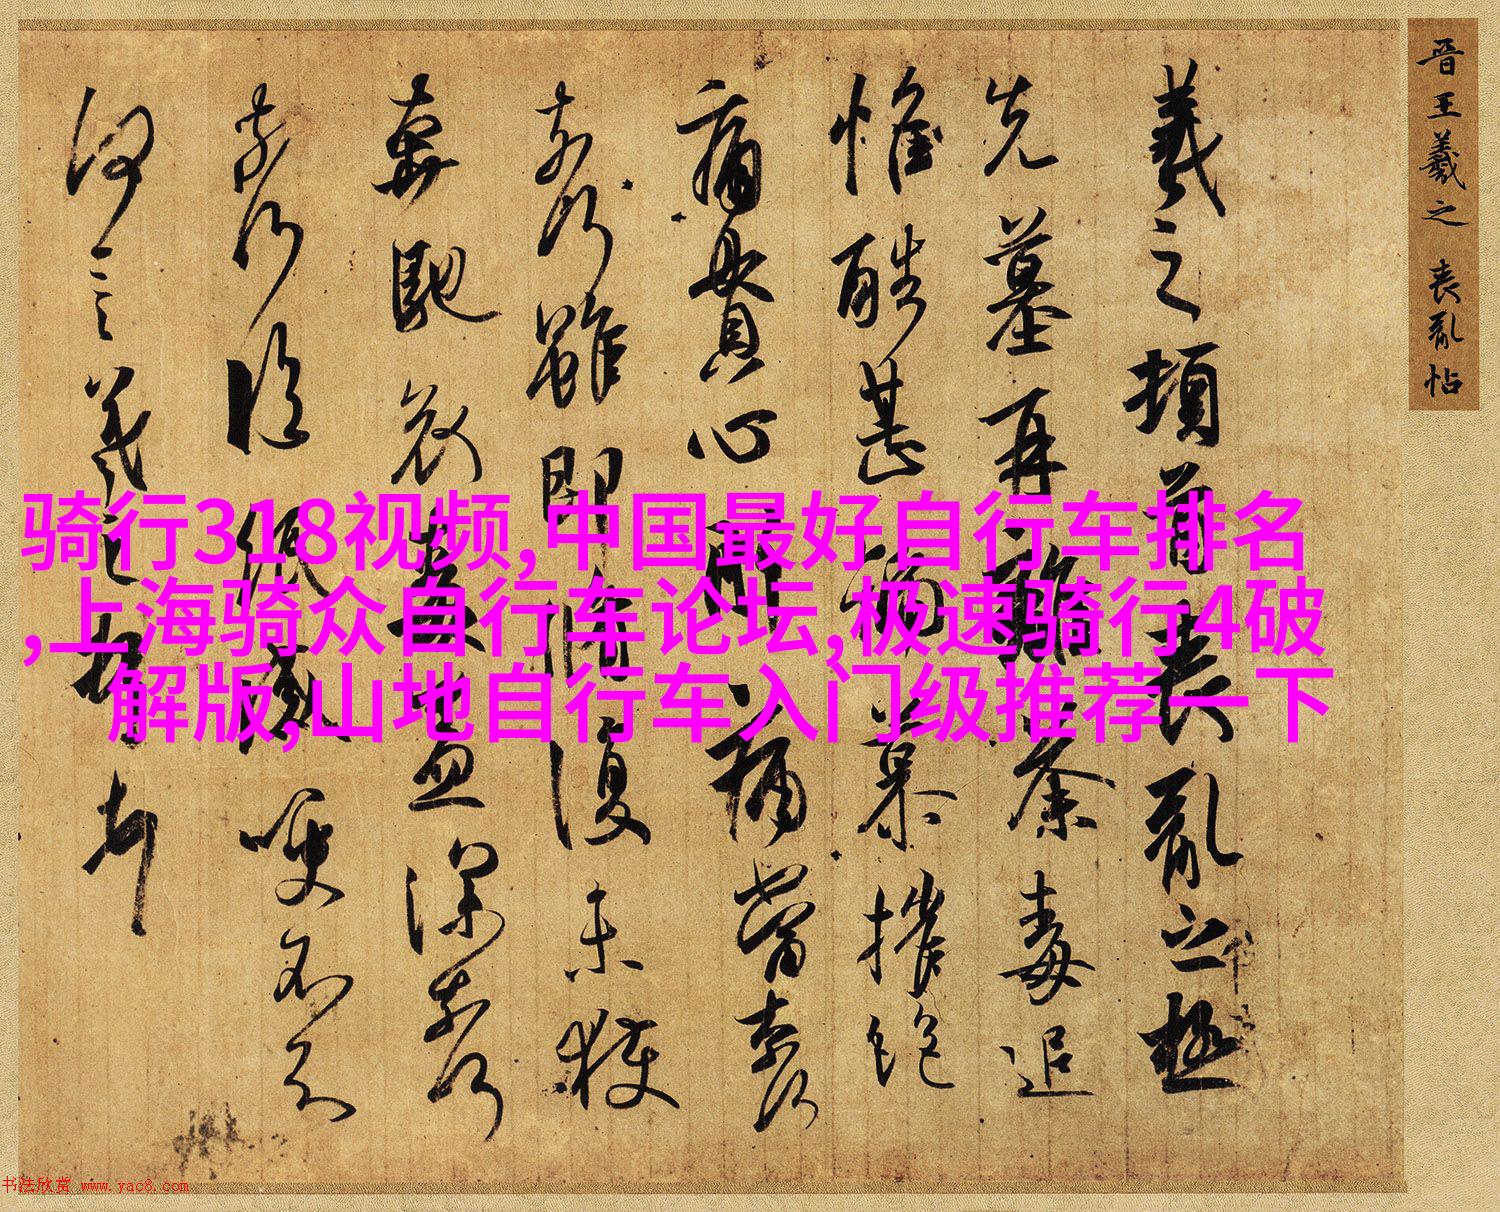 晋王羲之 丧乱帖
羲之顿首丧乱之极
先墓再離荼毒追
惟酷甚號慕摧絶
痛貫心肝痛當奈何
奈何雖即脩復未獲
奔馳哀毒益深奈何
奈何臨紙感哽不知
何言羲之頓首頓首
骑行318视频,中国最好自行车排名
,上海骑众自行车论坛,极速骑行4破
解版,山地自行车入门级推荐一下
书法欣赏 www.yac8.com